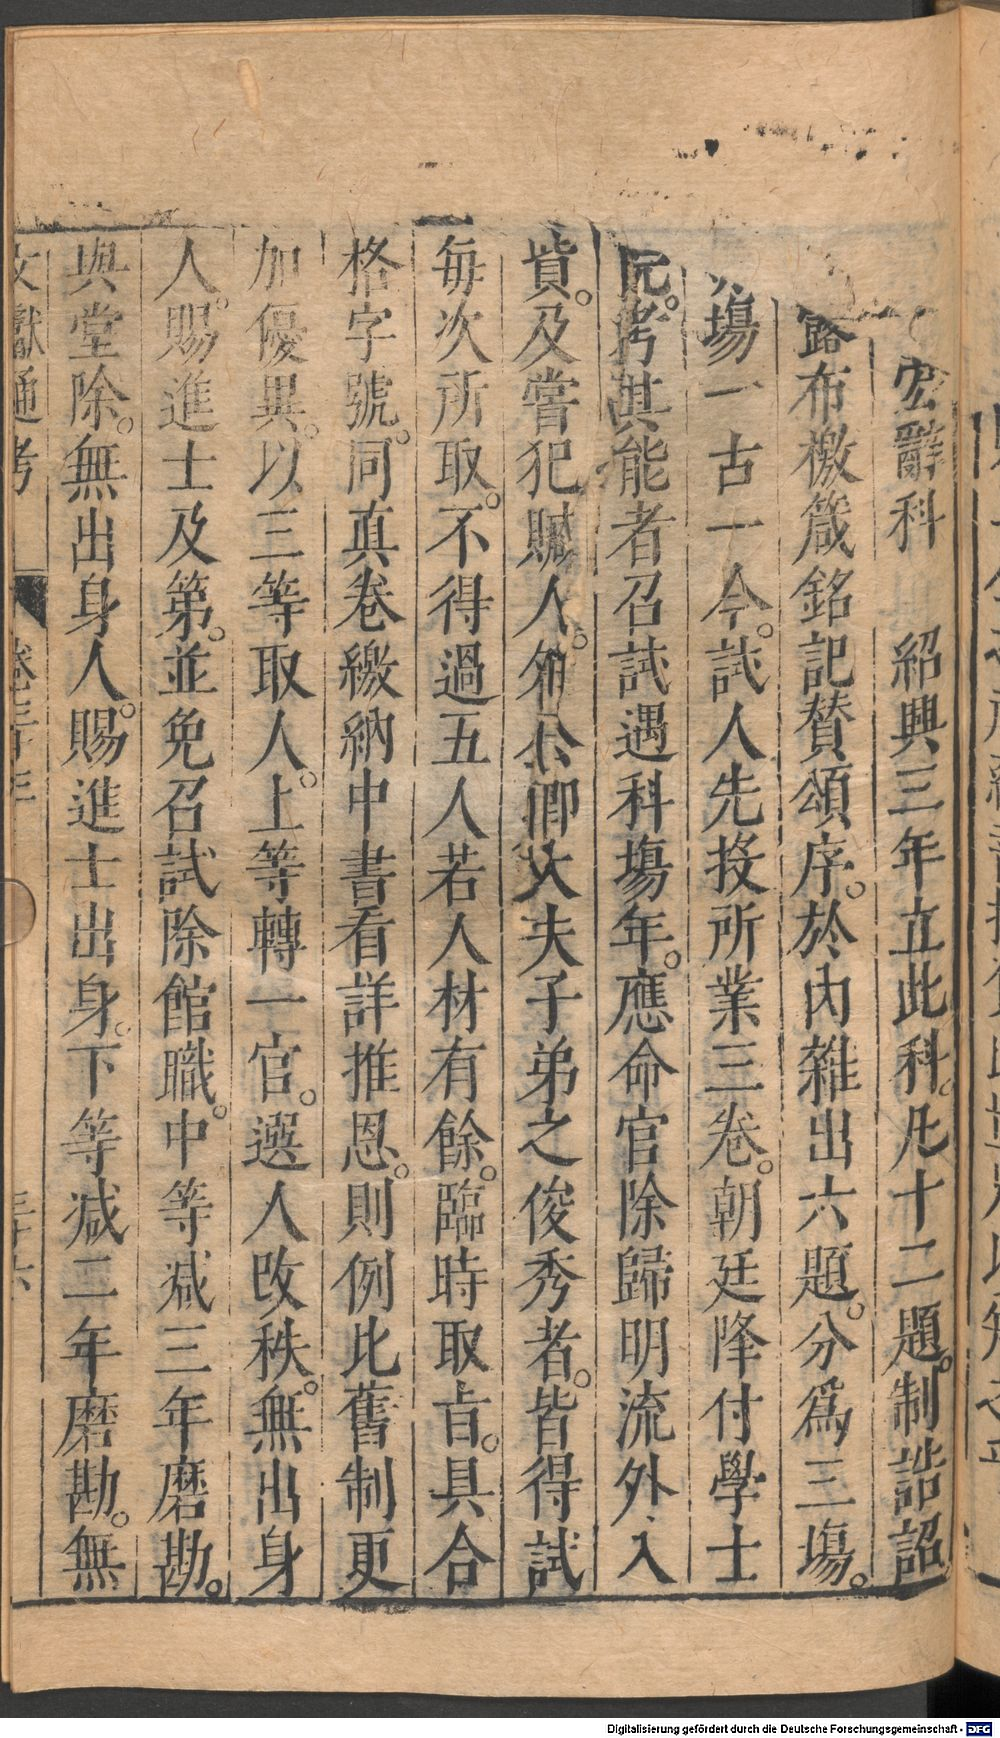 宏辭科 紹興三年立此科。凡十二題。制誥詔
露布檄箴銘記贊頌序。於內雜出六題。分爲三塲。
塲一古一今。試人先投所業三卷。朝廷降付學士
院。考其能者召試遇科塲年。應命官除歸明流外入
貲。及嘗犯贓人。外公卿大夫子弟之俊秀者。皆得試
每次所取。不得過五人若人材有餘。臨時取㫖。具合
格字號。同真卷繳納中書看詳推恩。則例比舊制更
加優異。以三等取人。上等轉一官。選人改秩。無出身
人。賜進士及第。並免召試除館職。中等减三年磨勘。
與堂除。無出身人。賜進士出身。下等减二年磨勘。無
文獻通考 卷三十三 三十六
Digitalisierung gefördert durch die Deutsche Forschungsgemeinschaft - DFG